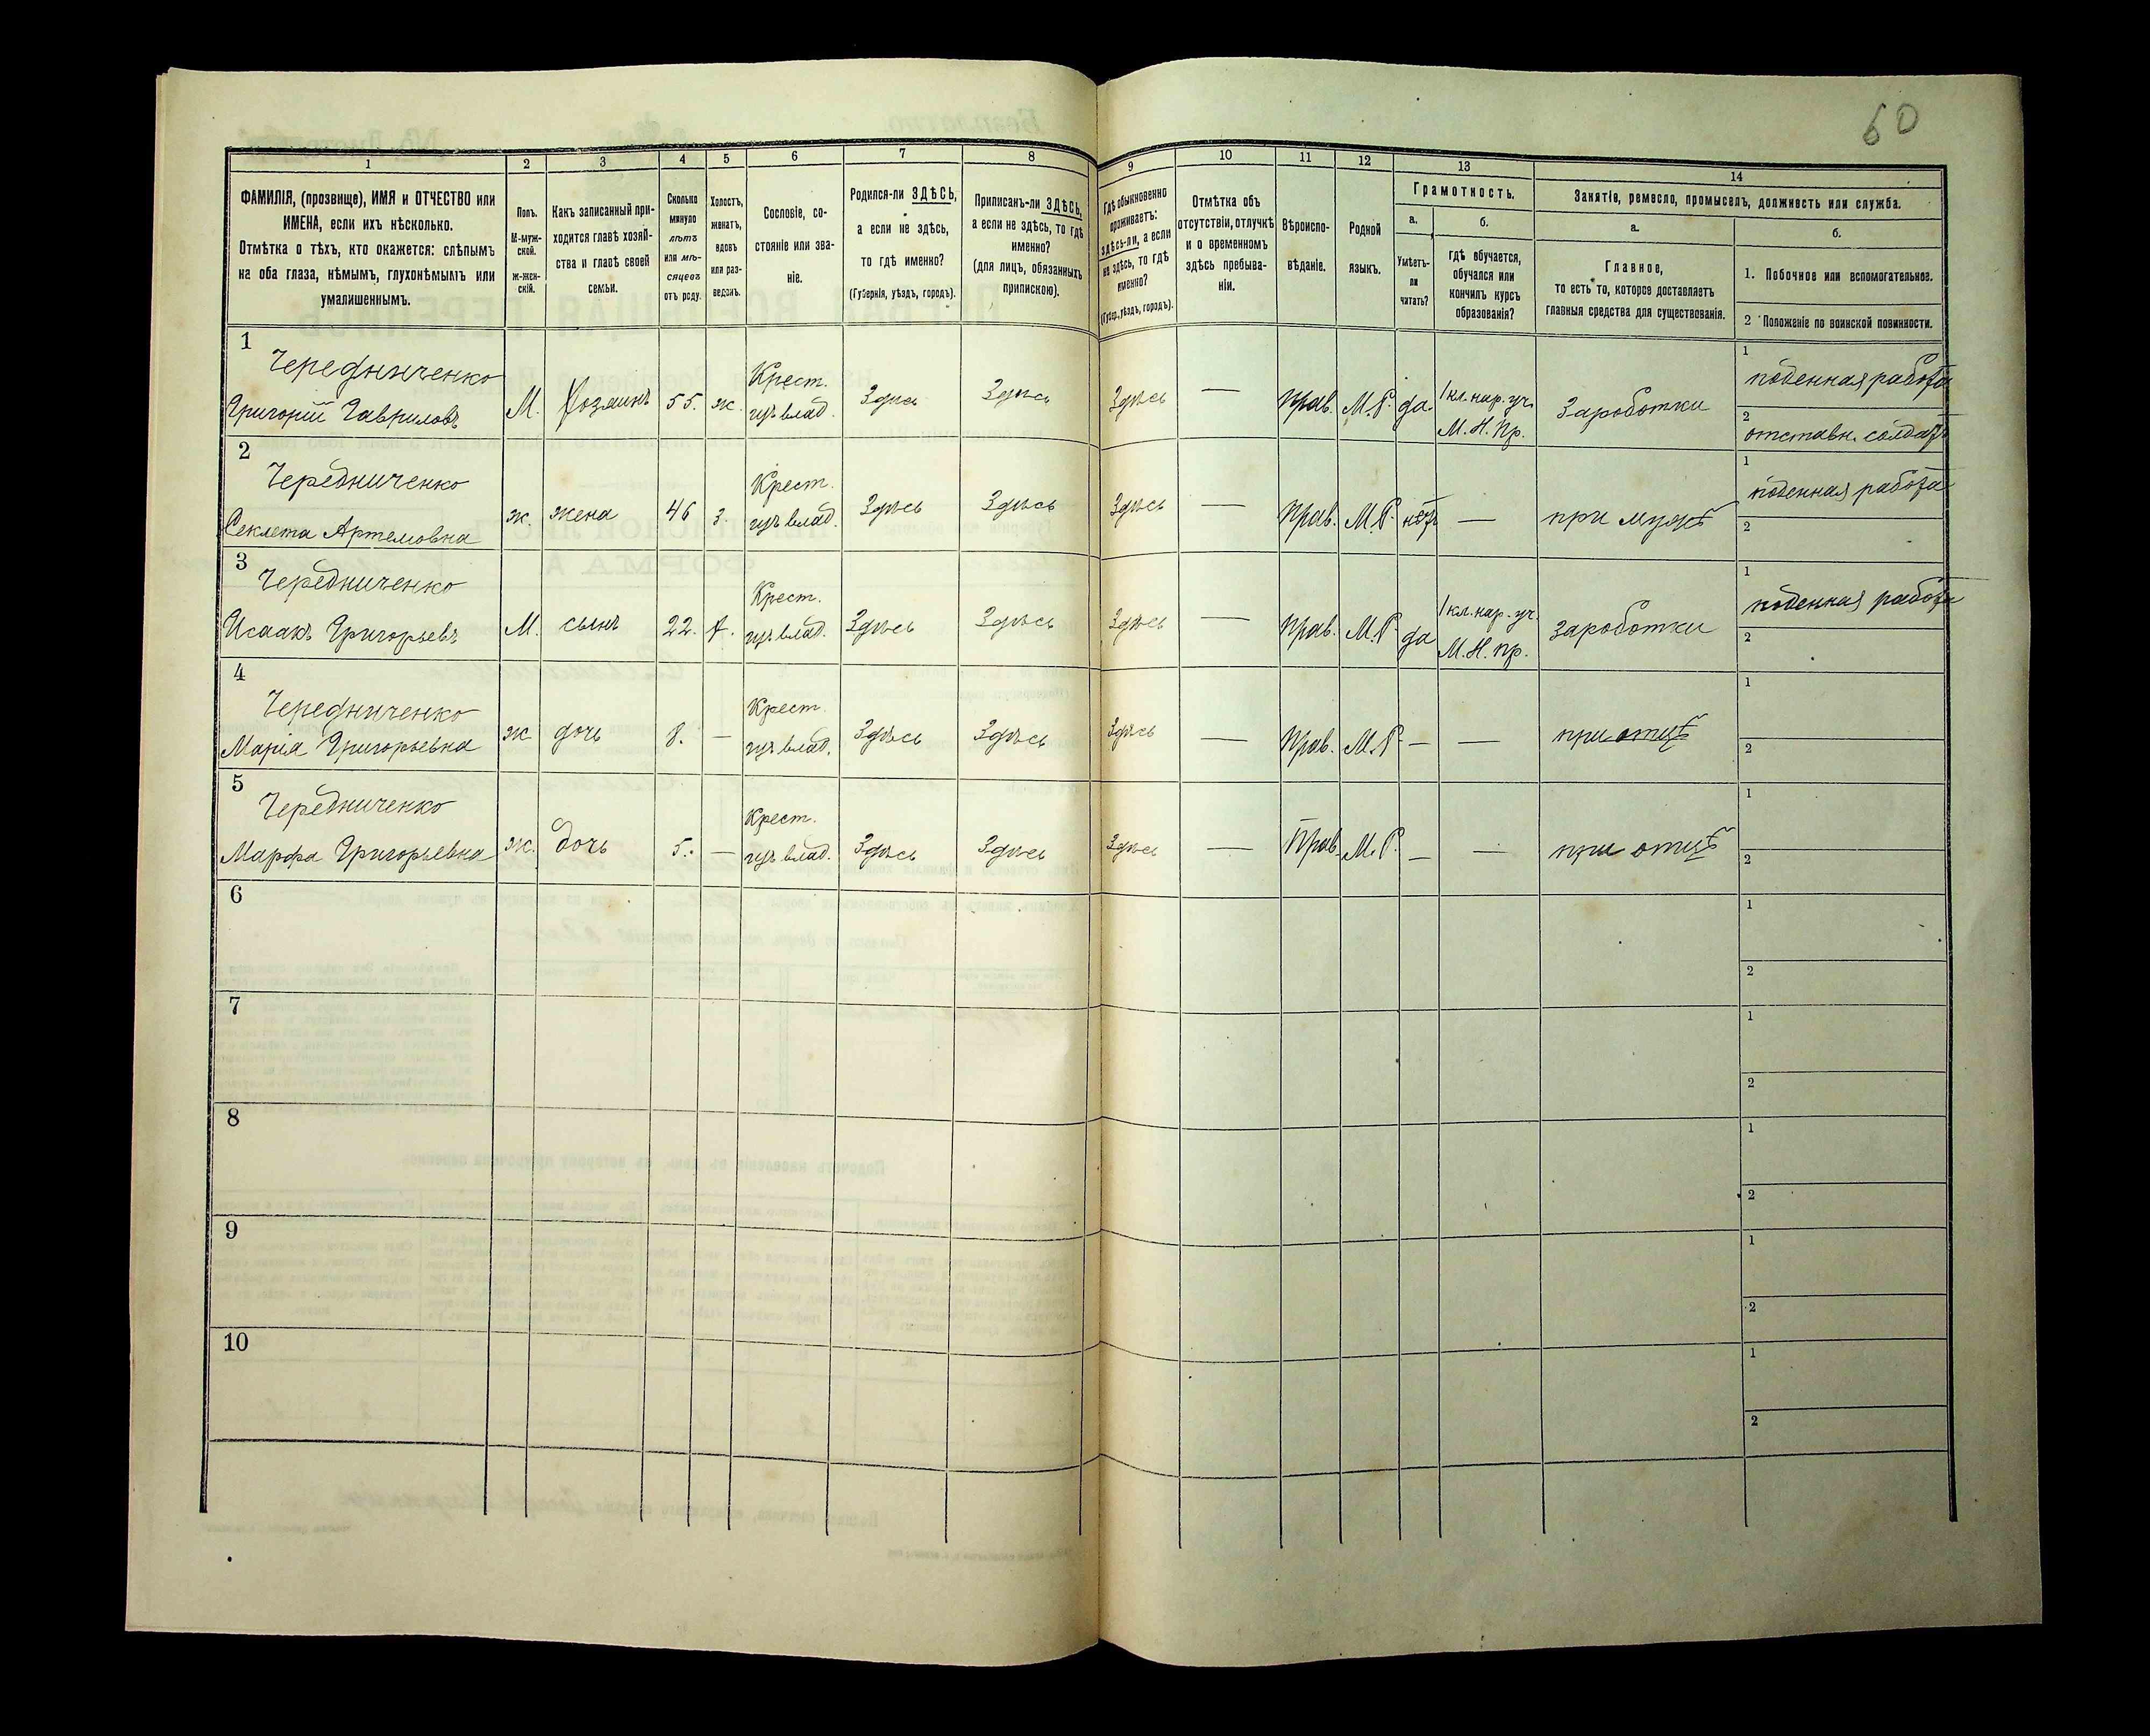 60
1 2 3 4 5 6 7 8 9 10 11 12 13 14
ФАМИЛІЯ, (прозвище), ИМЯ и ОТЧЕСТВО или
ИМЕНА, если ихъ нѣсколько.
Отмѣтка о тѣхъ, кто окажется: слѣпымъ
на оба глаза, нѣмымъ, глухонѣмымъ или
умалишеннымъ.
Полъ.
М-муж-
ской.
Ж-жен-
скій.
Какъ записанный при-
ходится главѣ хозяй-
ства и главѣ своей
семьи.
Сколько
минуло
лѣтъ
или мѣ-
сяцевъ
отъ роду.
Холостъ,
женатъ,
вдовъ
или раз-
веденъ.
Сословіе, со-
стояніе или зва-
ніе.
Родился-ли ЗДѢСЬ,
а если не здѣсь,
то гдѣ именно?
(Губернія, уѣздъ, городъ).
Приписанъ-ли ЗДѢСЬ,
а если не здѣсь, то гдѣ
именно?
(для лицъ, обязанныхъ
припискою).
Гдѣ обыкновенно
проживаетъ:
здѣсь-ли, а если
не здѣсь, то гдѣ
именно?
(Губер., уѣздъ, городъ).
Отмѣтка объ
отсутствіи, отлучкѣ
и о временномъ
здѣсь пребыва-
ніи.
Вѣроиспо-
вѣданіе.
Родной
языкъ.
Грамотность.
а.
Умѣетъ-
ли
читать?
б.
гдѣ обучается,
обучался или
кончилъ курсъ
образованія?
Занятіе, ремесло, промыселъ, должность или служба.
а.
Главное,
то есть то, которое доставляетъ
главныя средства для существованія.
б.
1. Побочное или вспомогательное.
2 Положеніе по воинской повинности.
1
Чередниченко
Григорій Гавриловъ М. Хозяинъ 55. ж. Крест. Здѣсь Здѣсь Здѣсь — Прав. М.Р. да. 1 кл. нар. уч. М. Н. Пр. Заработки
1 поденная работа
2 отставн. солдатъ
2
Чередниченко
Секлета Артемовна ж. жена 46 з. Крест. Здѣсь Здѣсь Здѣсь — Прав. М.Р. нѣтъ — при мужѣ
1 поденная работа
2
3
Чередниченко
Исаакъ Григорьевъ М. сынъ 22. х. Крест. Здѣсь Здѣсь Здѣсь — Прав. М.Р. да 1 кл. нар. уч. М. Н. Пр. Заработки
1 поденная работа
2
4
Чередниченко
Марія Григорьевна ж дочь 8. — Крест. Здѣсь Здѣсь Здѣсь — Прав. М.Р. — — при отцѣ
1
2
5
Чередниченко
Марфа Григорьевна ж. дочь 5. — Крест. Здѣсь Здѣсь Здѣсь — Прав. М.Р. — — при отцѣ
1
2
6
1
2
7
1
2
8
1
2
9
1
2
10
1
2